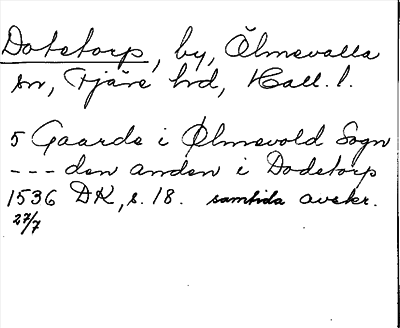 Dotetorp, by, Ölmevalla
sn, Fjäre hd, Hall. l.
5 Gaarde i Ølmevold Sogn
--- den anden i Dodetorp
1536 DK, s. 18. samtida avskr.
27/7